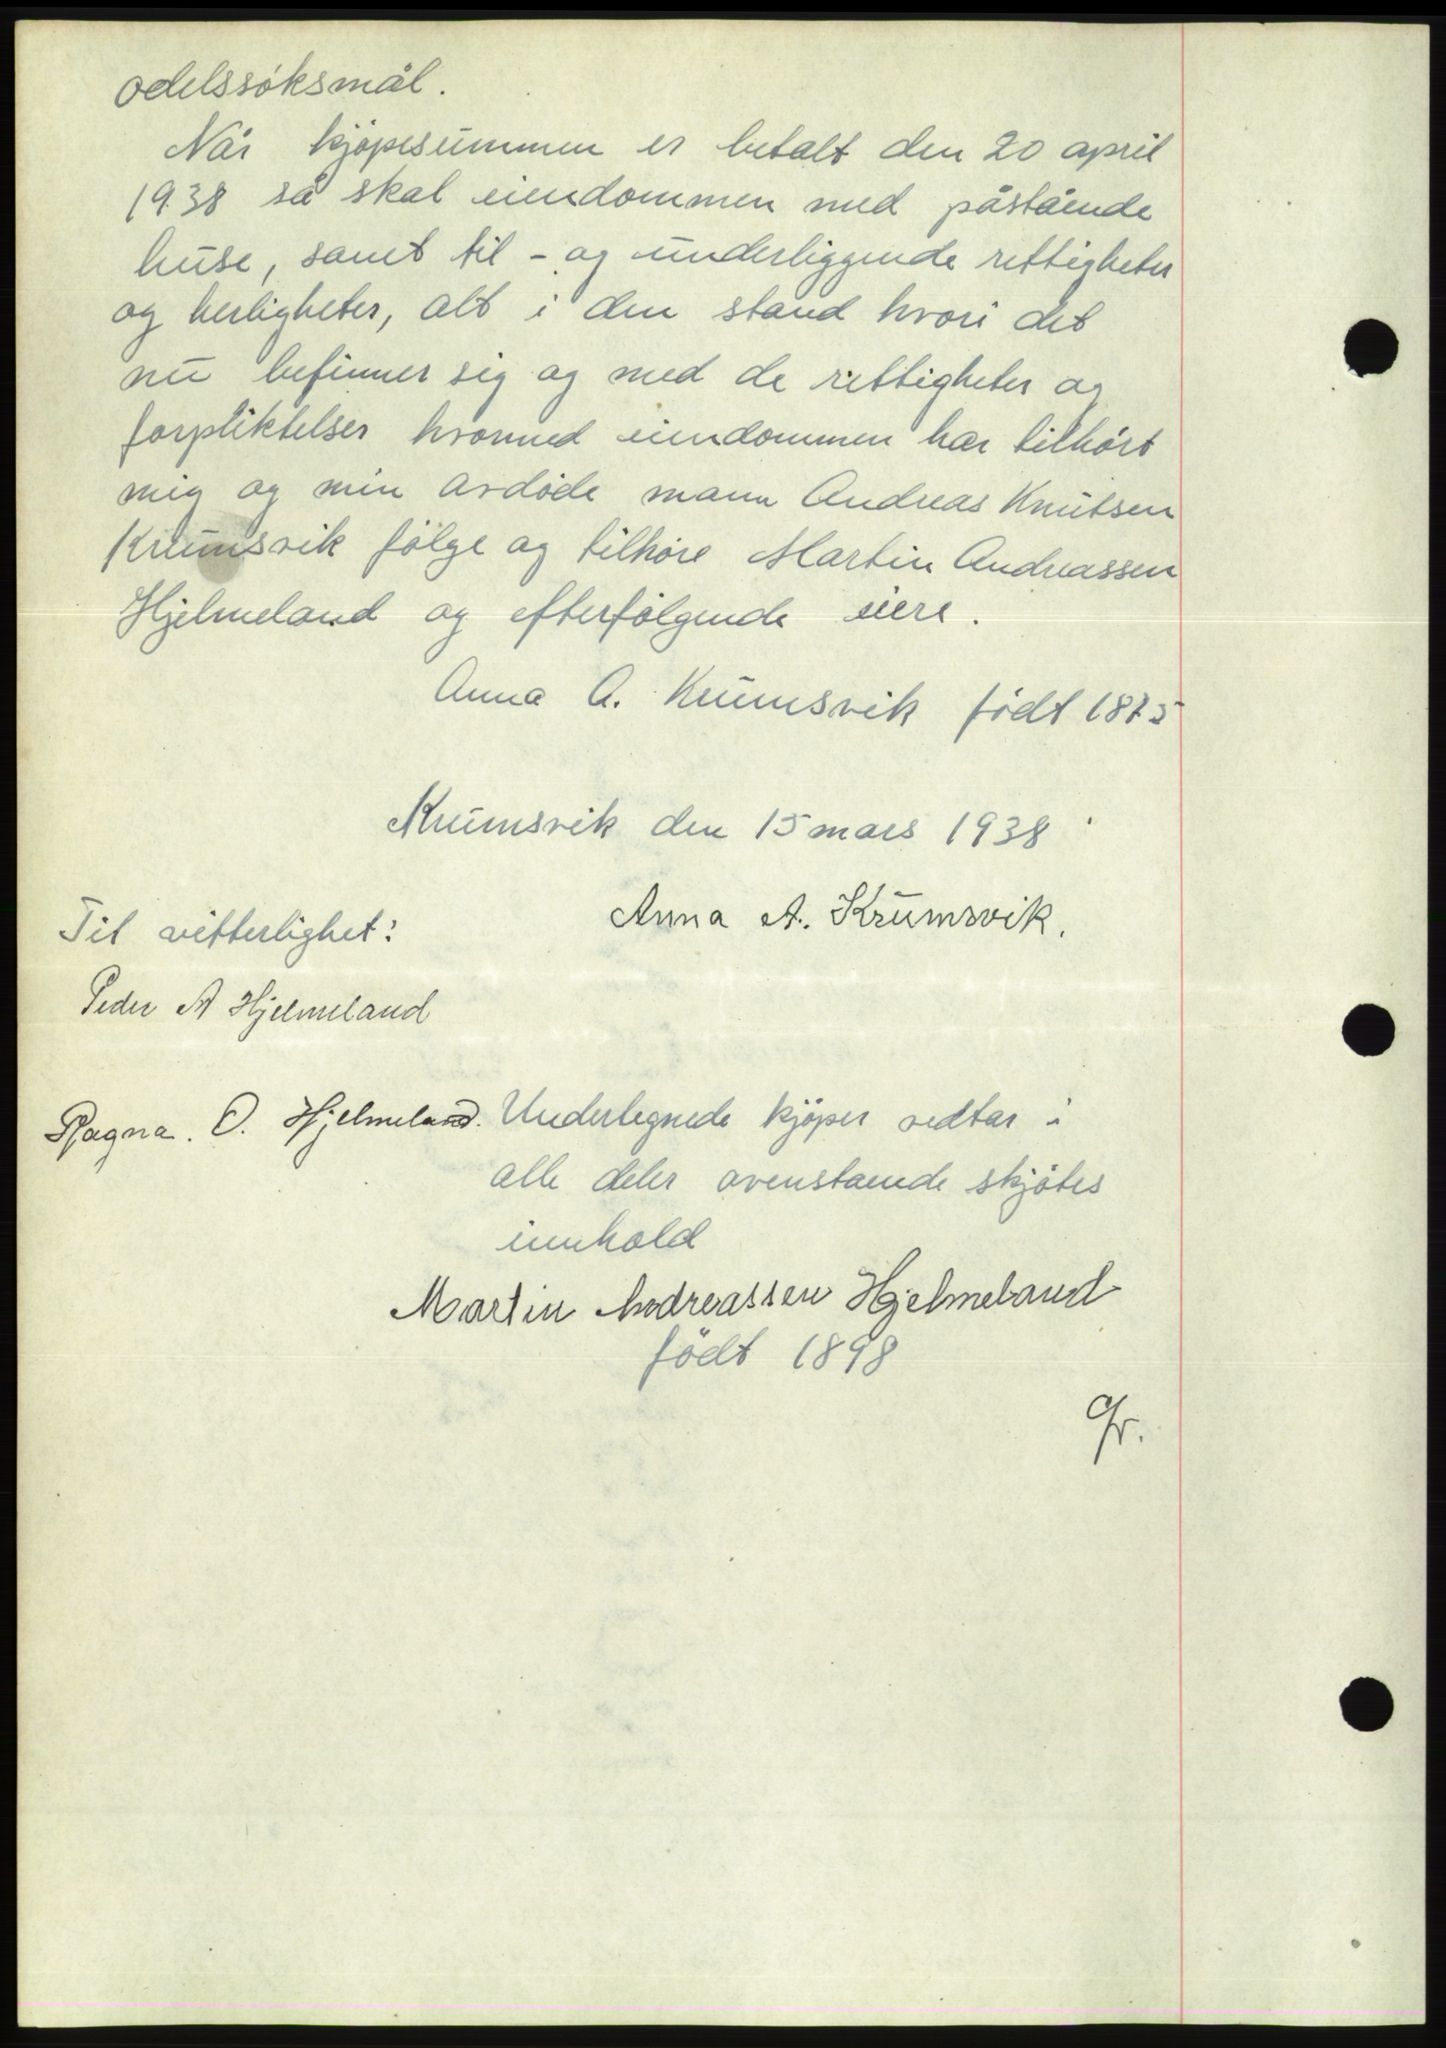 odelssøksmål.
Når kjøpesummen er betalt den 20 april
1938 så skal eiendommen med påstående
huse, samt til - og underliggende rettigheter
og herligheter, alt i den stand hvori det
nu befinner sig og med de rettigheter og
forpliktelser hvormed eiendommen har tilhørt
mig og min avdøde mann Andreas Knutsen
Krumsvik følge og tilhøre Martin Andreassen
Hjelmeland og efterfølgende eiere.
Anna A. Krumsvik født 1875
Krumsvik den 15 mars 1938
Anna A. Krumsvik.
Til vitterlighet:
Peder A Hjelmeland
Ragna. O. Hjelmeland.
Underlegnede kjøper vedtar i
alle deler ovenstaende skjøtes
innhold
Martin Andreassen Hjelmeland
født 1898